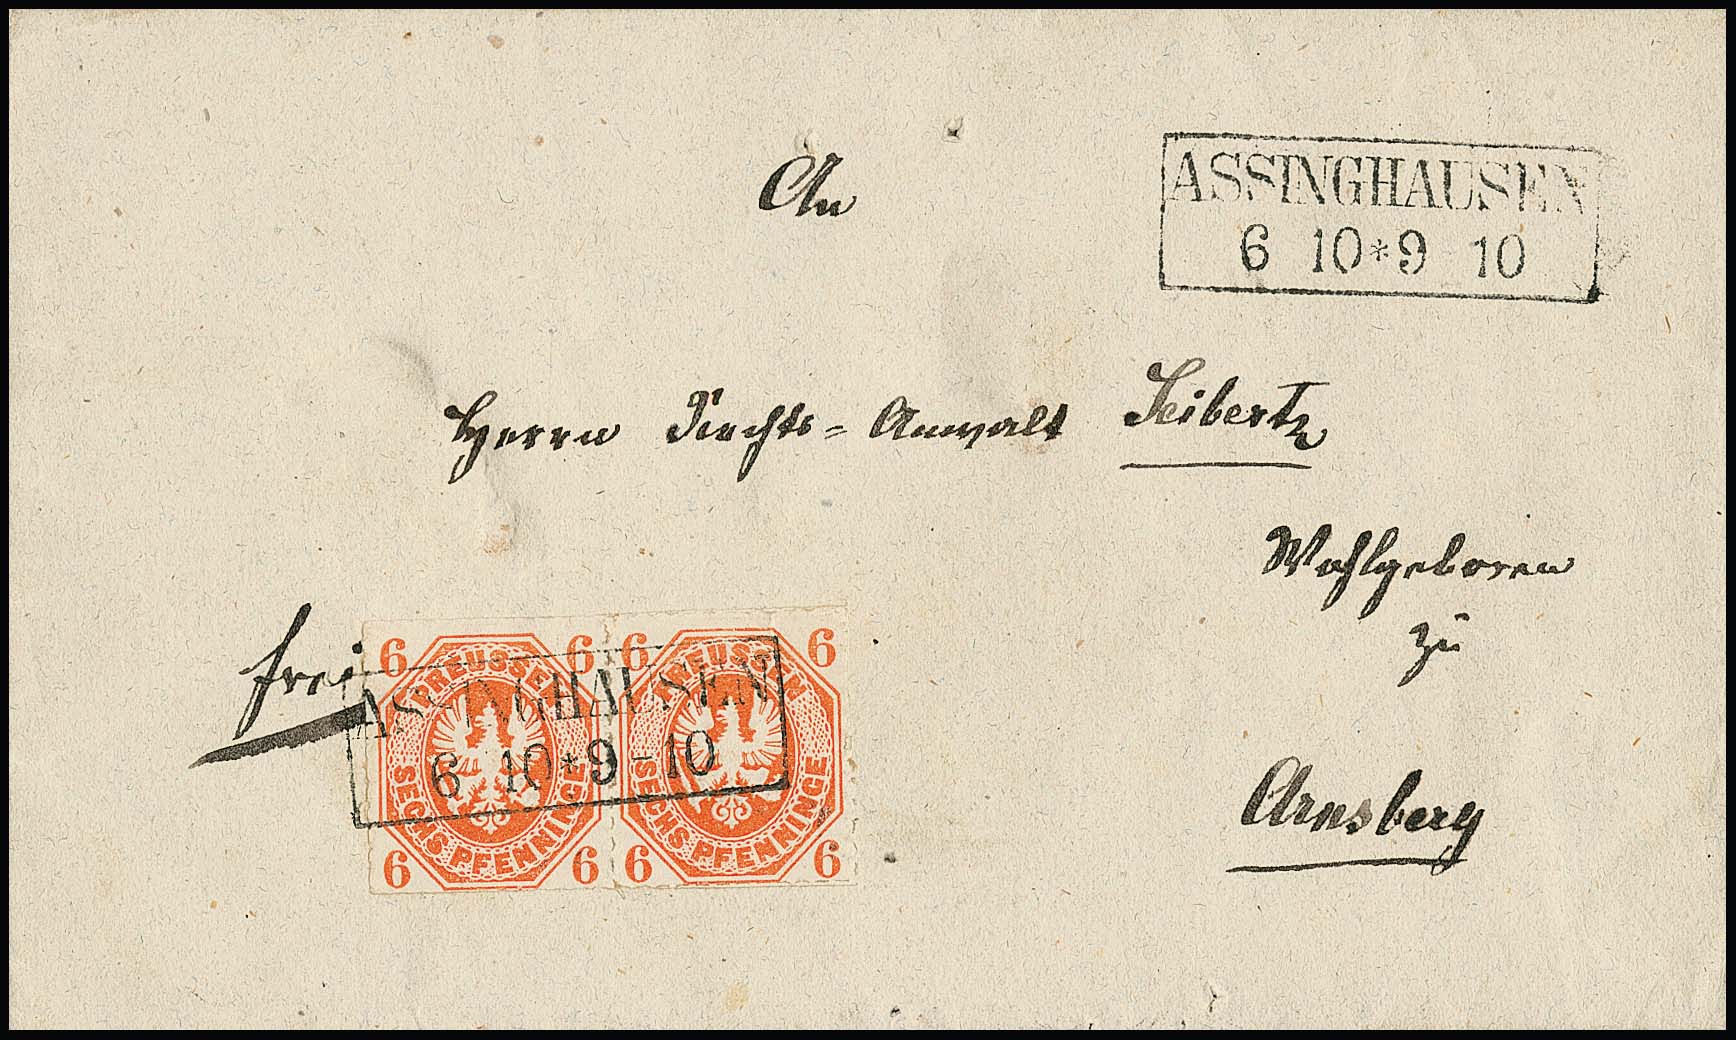 An
ASSINGHAUSEN
6 10 * 9 10
Herrn Rechts = Anwalt Seibertz
Wohlgeboren
zu
Arnsberg
frei
6 6 6 6
PREUSSEN PREUSSEN
ASSINGHAUSEN
6 10 * 9 - 10
SECHS PFENNINGE SECHS PFENNINGE
6 6 6 6